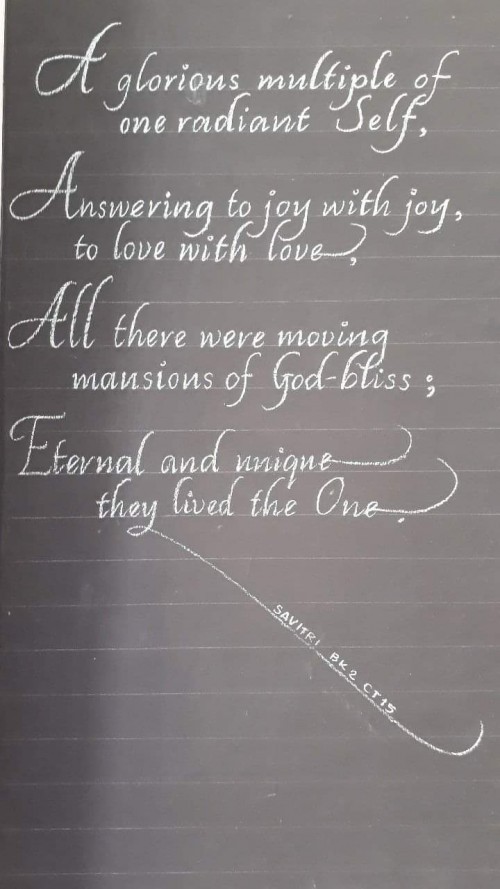 A glorious multiple of
one radiant Self,
Answering to joy with joy,
to love with love,
All there were moving
mansions of God-bliss;
Eternal and unique
they lived the One.
SAVITRI BK2 CT15